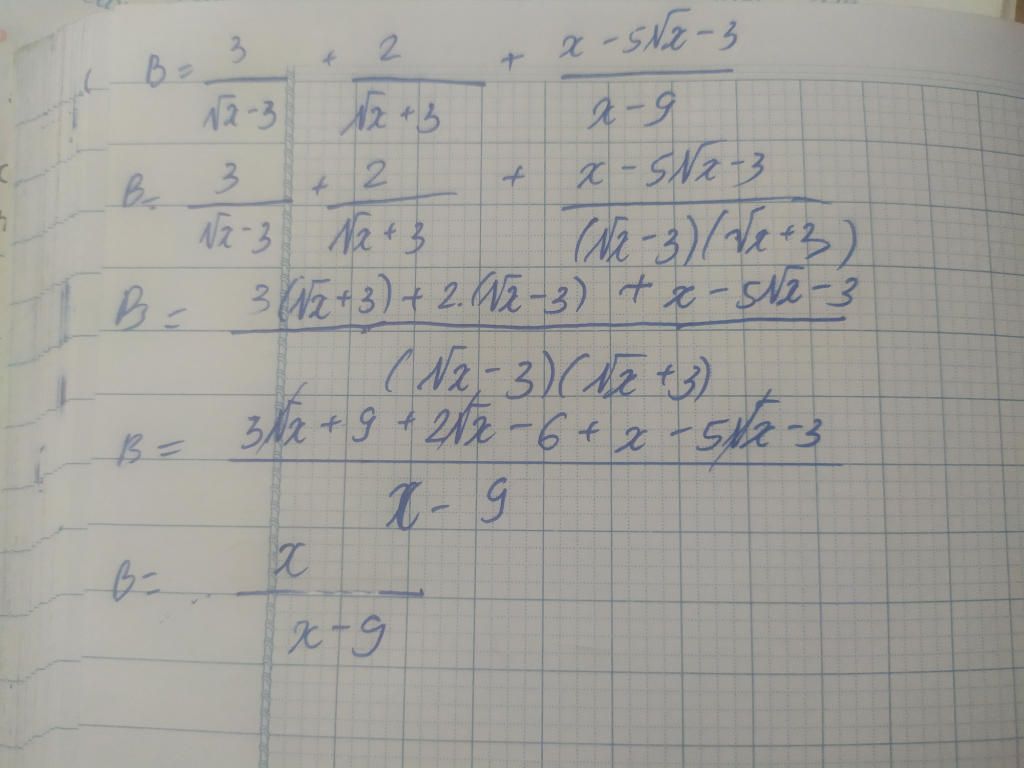 B = 3/(√x-3) + 2/(√x+3) + (x-5√x-3)/(x-9)
B = 3/(√x-3) + 2/(√x+3) + (x-5√x-3)/((√x-3)(√x+3))
B = (3(√x+3)+2.(√x-3) + x-5√x-3)/((√x-3)(√x+3))
B = (3√x+9+2√x-6+x-5√x-3)/(x-9)
B = x/(x-9)